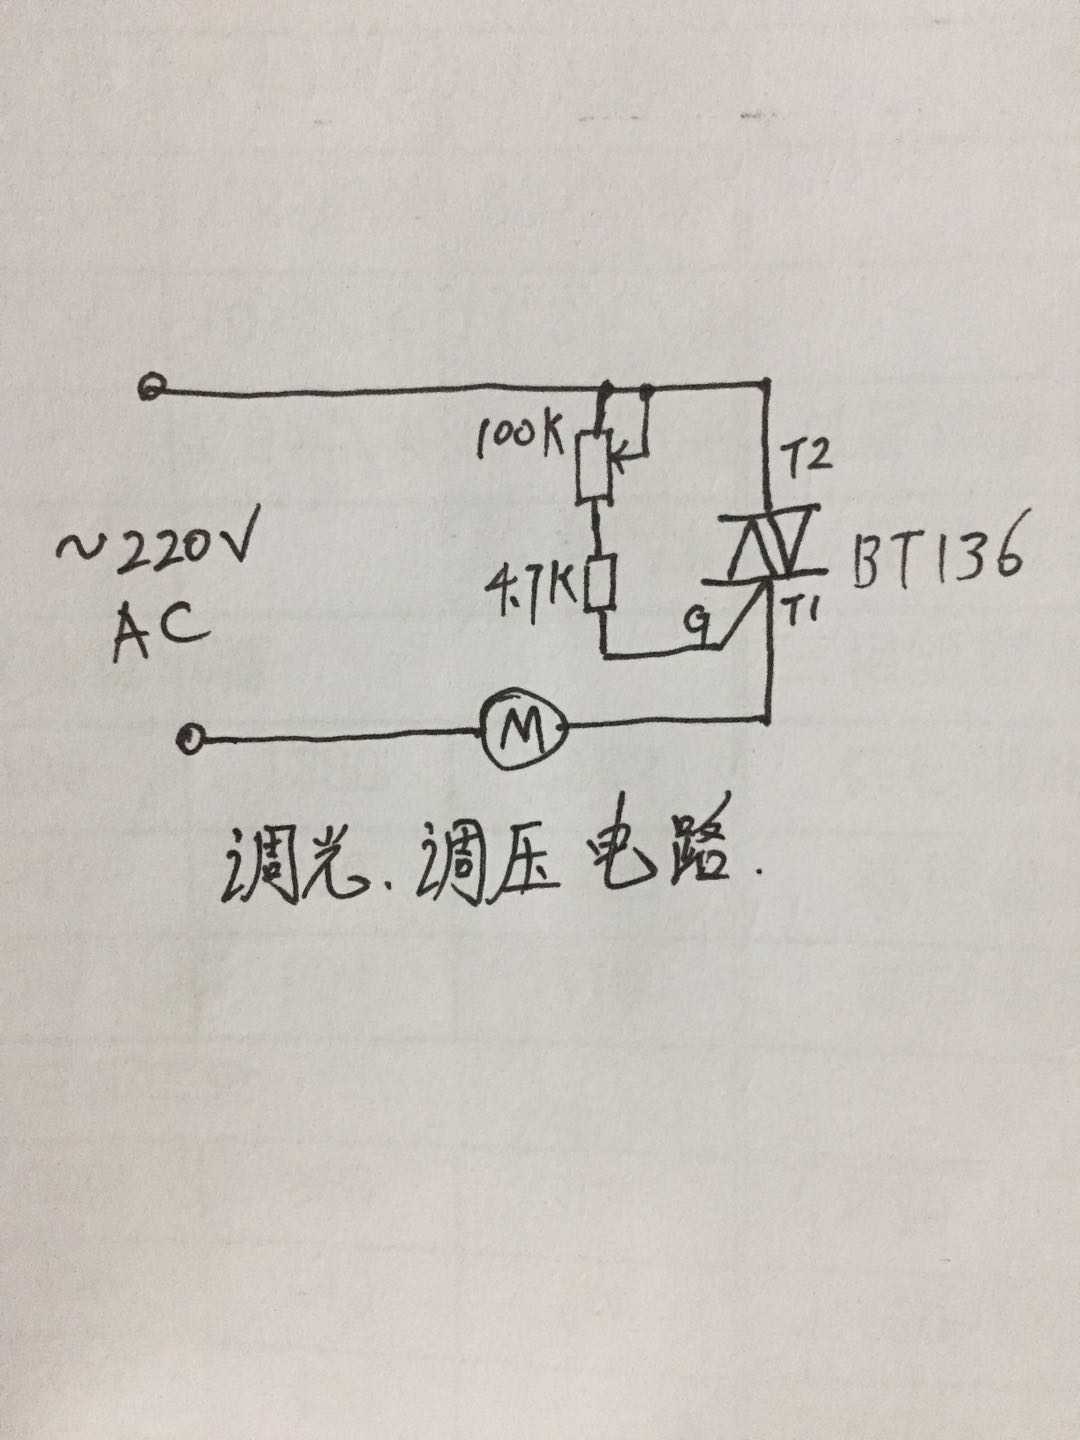 100K
T2
~220V
BT136
4.7K
AC
G
T1
M
调光、调压电路.